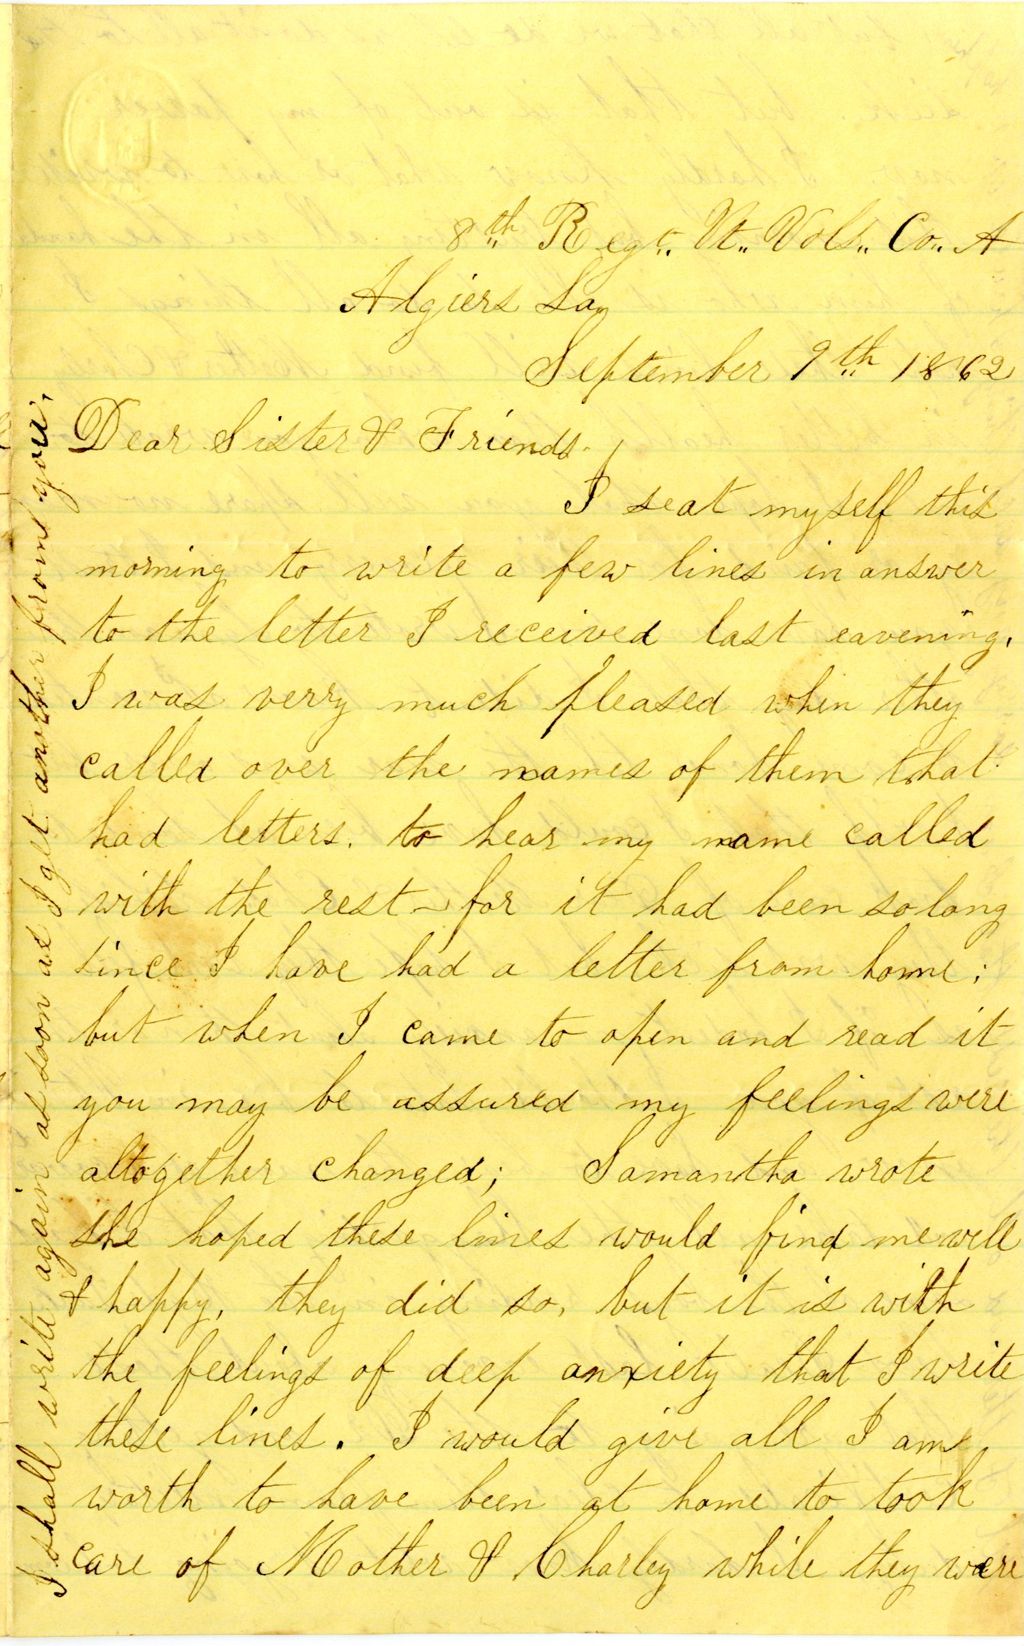 8th Regt. Vt. Vols. Co. A
Algiers La
September 9th 1862
Dear Sister & Friends.
I seat myself this
morning to write a few lines in answer
to the letter I received last eavening.
I was verry much pleased when they
called over the names of them that
had letters. to hear my name called
with the rest - for it had been so long
since I have had a letter from home;
but when I came to open and read it
you may be assured my feelings were
altogether changed; Samantha wrote
she hoped these lines would find me well
& happy, they did so, but it is with
the feelings of deep anxiety that I write
these lines. I would give all I am
worth to have been at home to took
care of Mother & Charley while they were
I shall write again as soon as I get another from you.